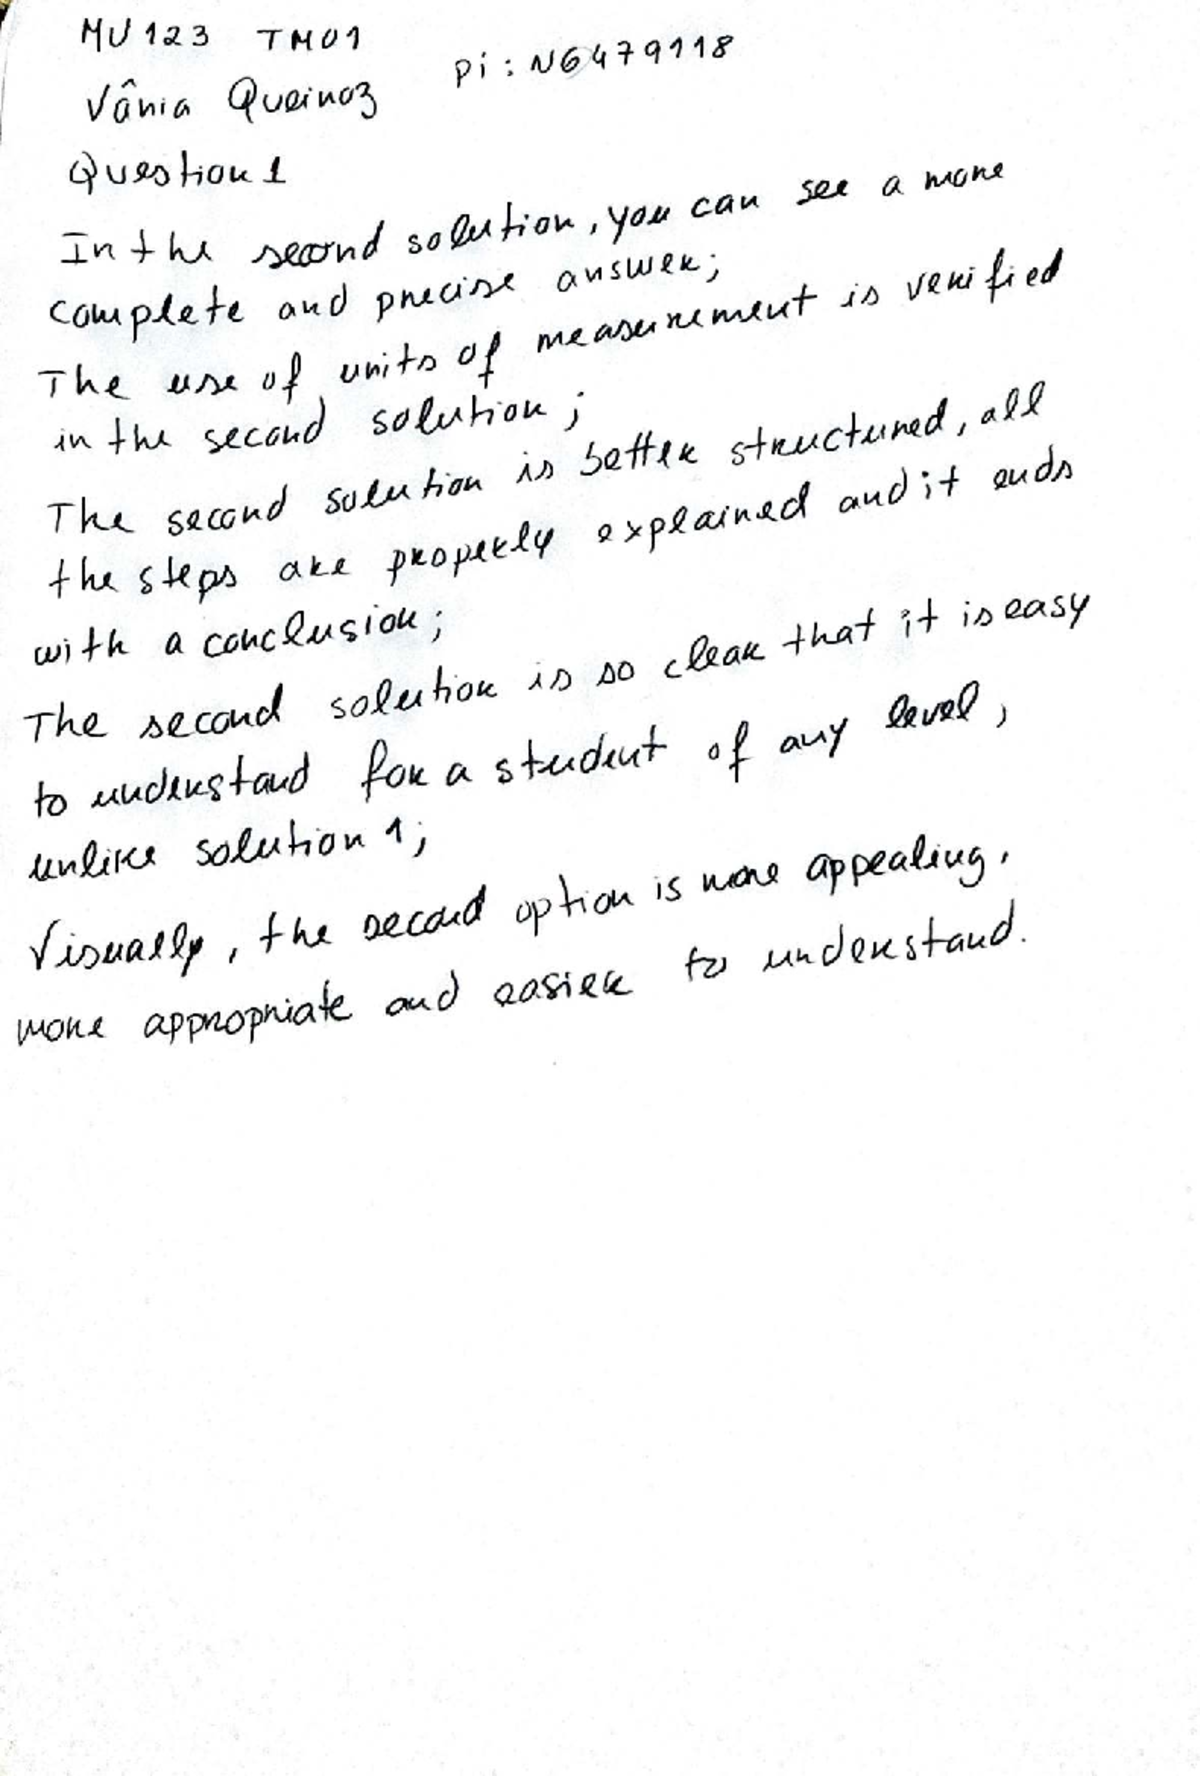 MU123 TM01
Vânia Queiroz pi: N6479118
Question 1
In the second solution, you can see a more
complete and precise answer;
The use of units of measurement is verified
in the second solution;
The second solution is better structured, all
the steps are properly explained and it ends
with a conclusion;
The second solution is so clear that it is easy
to understand for a student of any level,
unlike solution 1;
Visually, the second option is more appealing,
more appropriate and easier to understand.